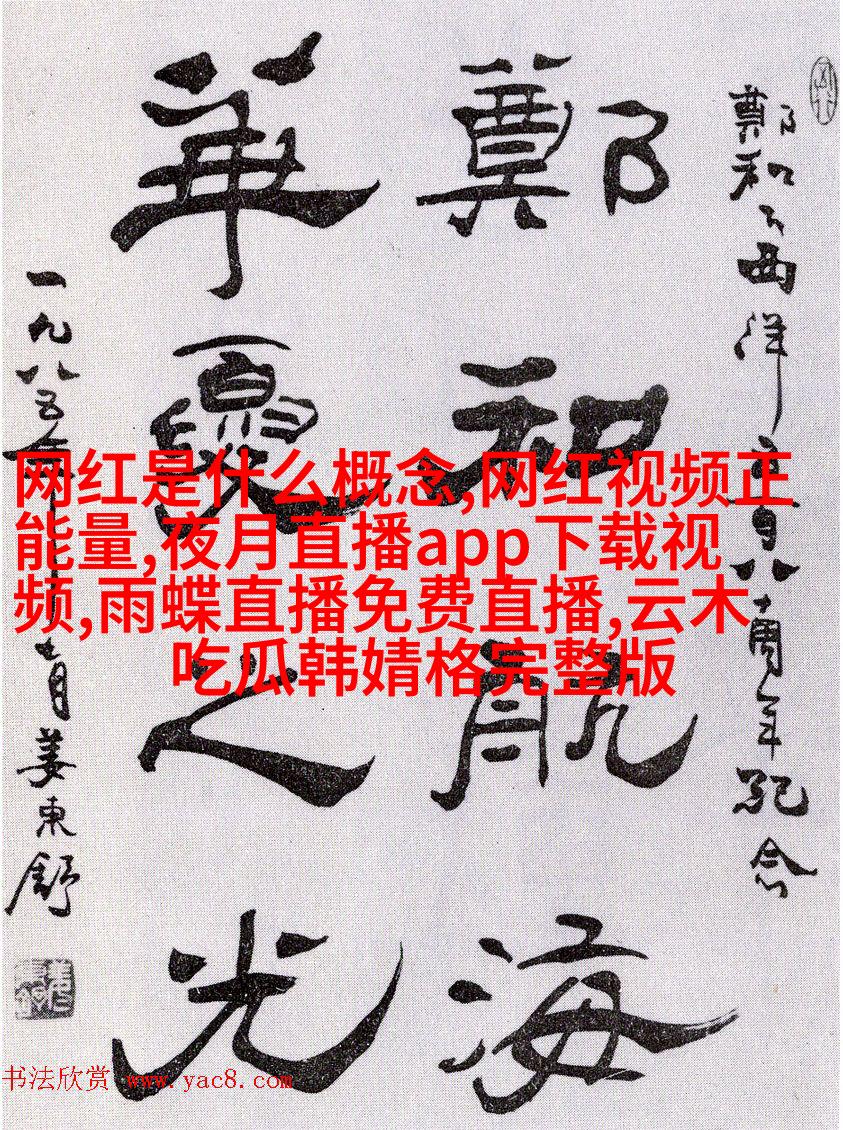 鄭和下西洋五百八十周年紀念
鄭和航海
華夏之光
一九八五年月姜東舒
网红是什么概念,网红视频正
能量,夜月直播app下载视
频,雨蝶直播免费直播,云木
吃瓜韩婧格完整版
书法欣赏 www.yac8.com